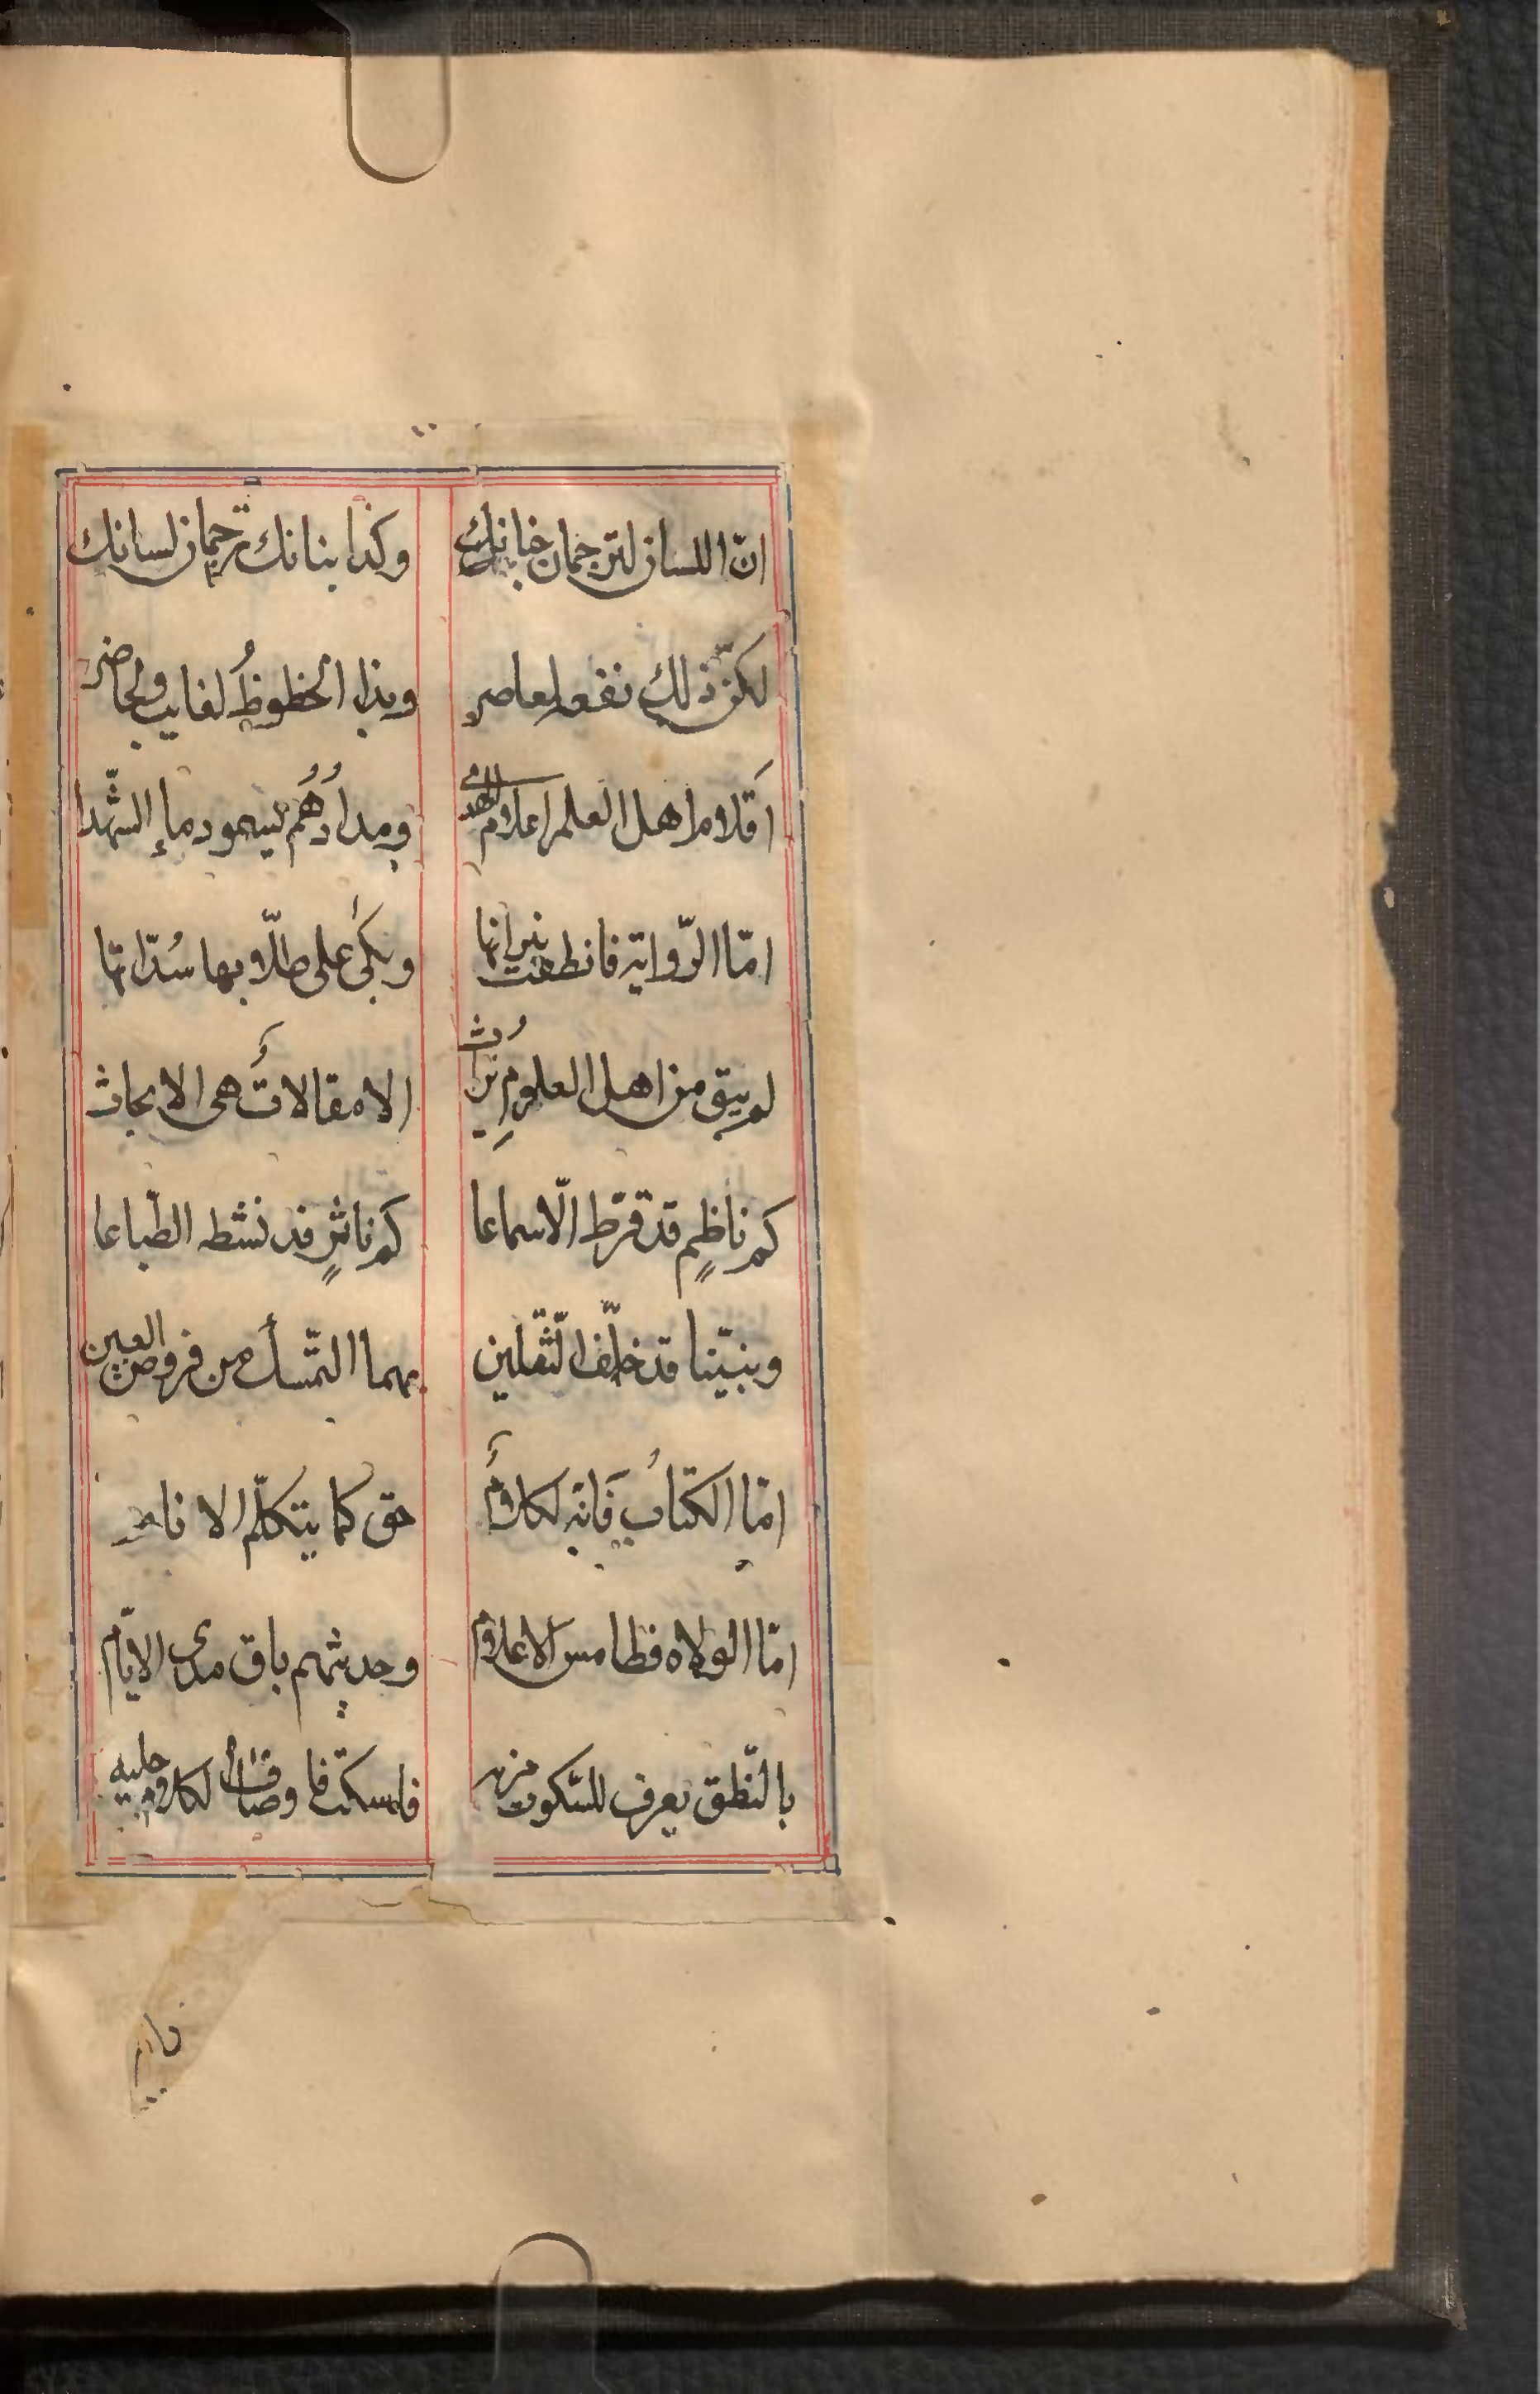 انّ اللسان لترجمان جنانك وكذا بنانك ترجمان لسانك
لكنّ ذلك نفعه لمعاصر وبذا الحظوظُ لغايب ولحاضر
اقلام اهل العلم اعلام الهدى ومدادُهُم يسمو دماء الشّهدا
امّا الرّواية فانطفت نيرانها وبكى على طلّابها سُدّانها
لم يبق من اهل العلومِ تراثُ الا مقالاتٌ هى الابحاث
كم ناظمٍ قد قرّط الاسماعا كم ناثرٍ قد نشط الطّباعا
ونبيّنا قد خلّف الثّقلين بهما التمّسك من فروض العين
امّا الكتابُ فَانّه لكلامٌ حق كما يتكلّم الا نام
امّا الولاه فطامس الاعلام وحديثهم باق مدى الايّام
بالنّطق يعرف للسّكوت مزيه فلمسكتٍ اوصافٌ لكلام جليه